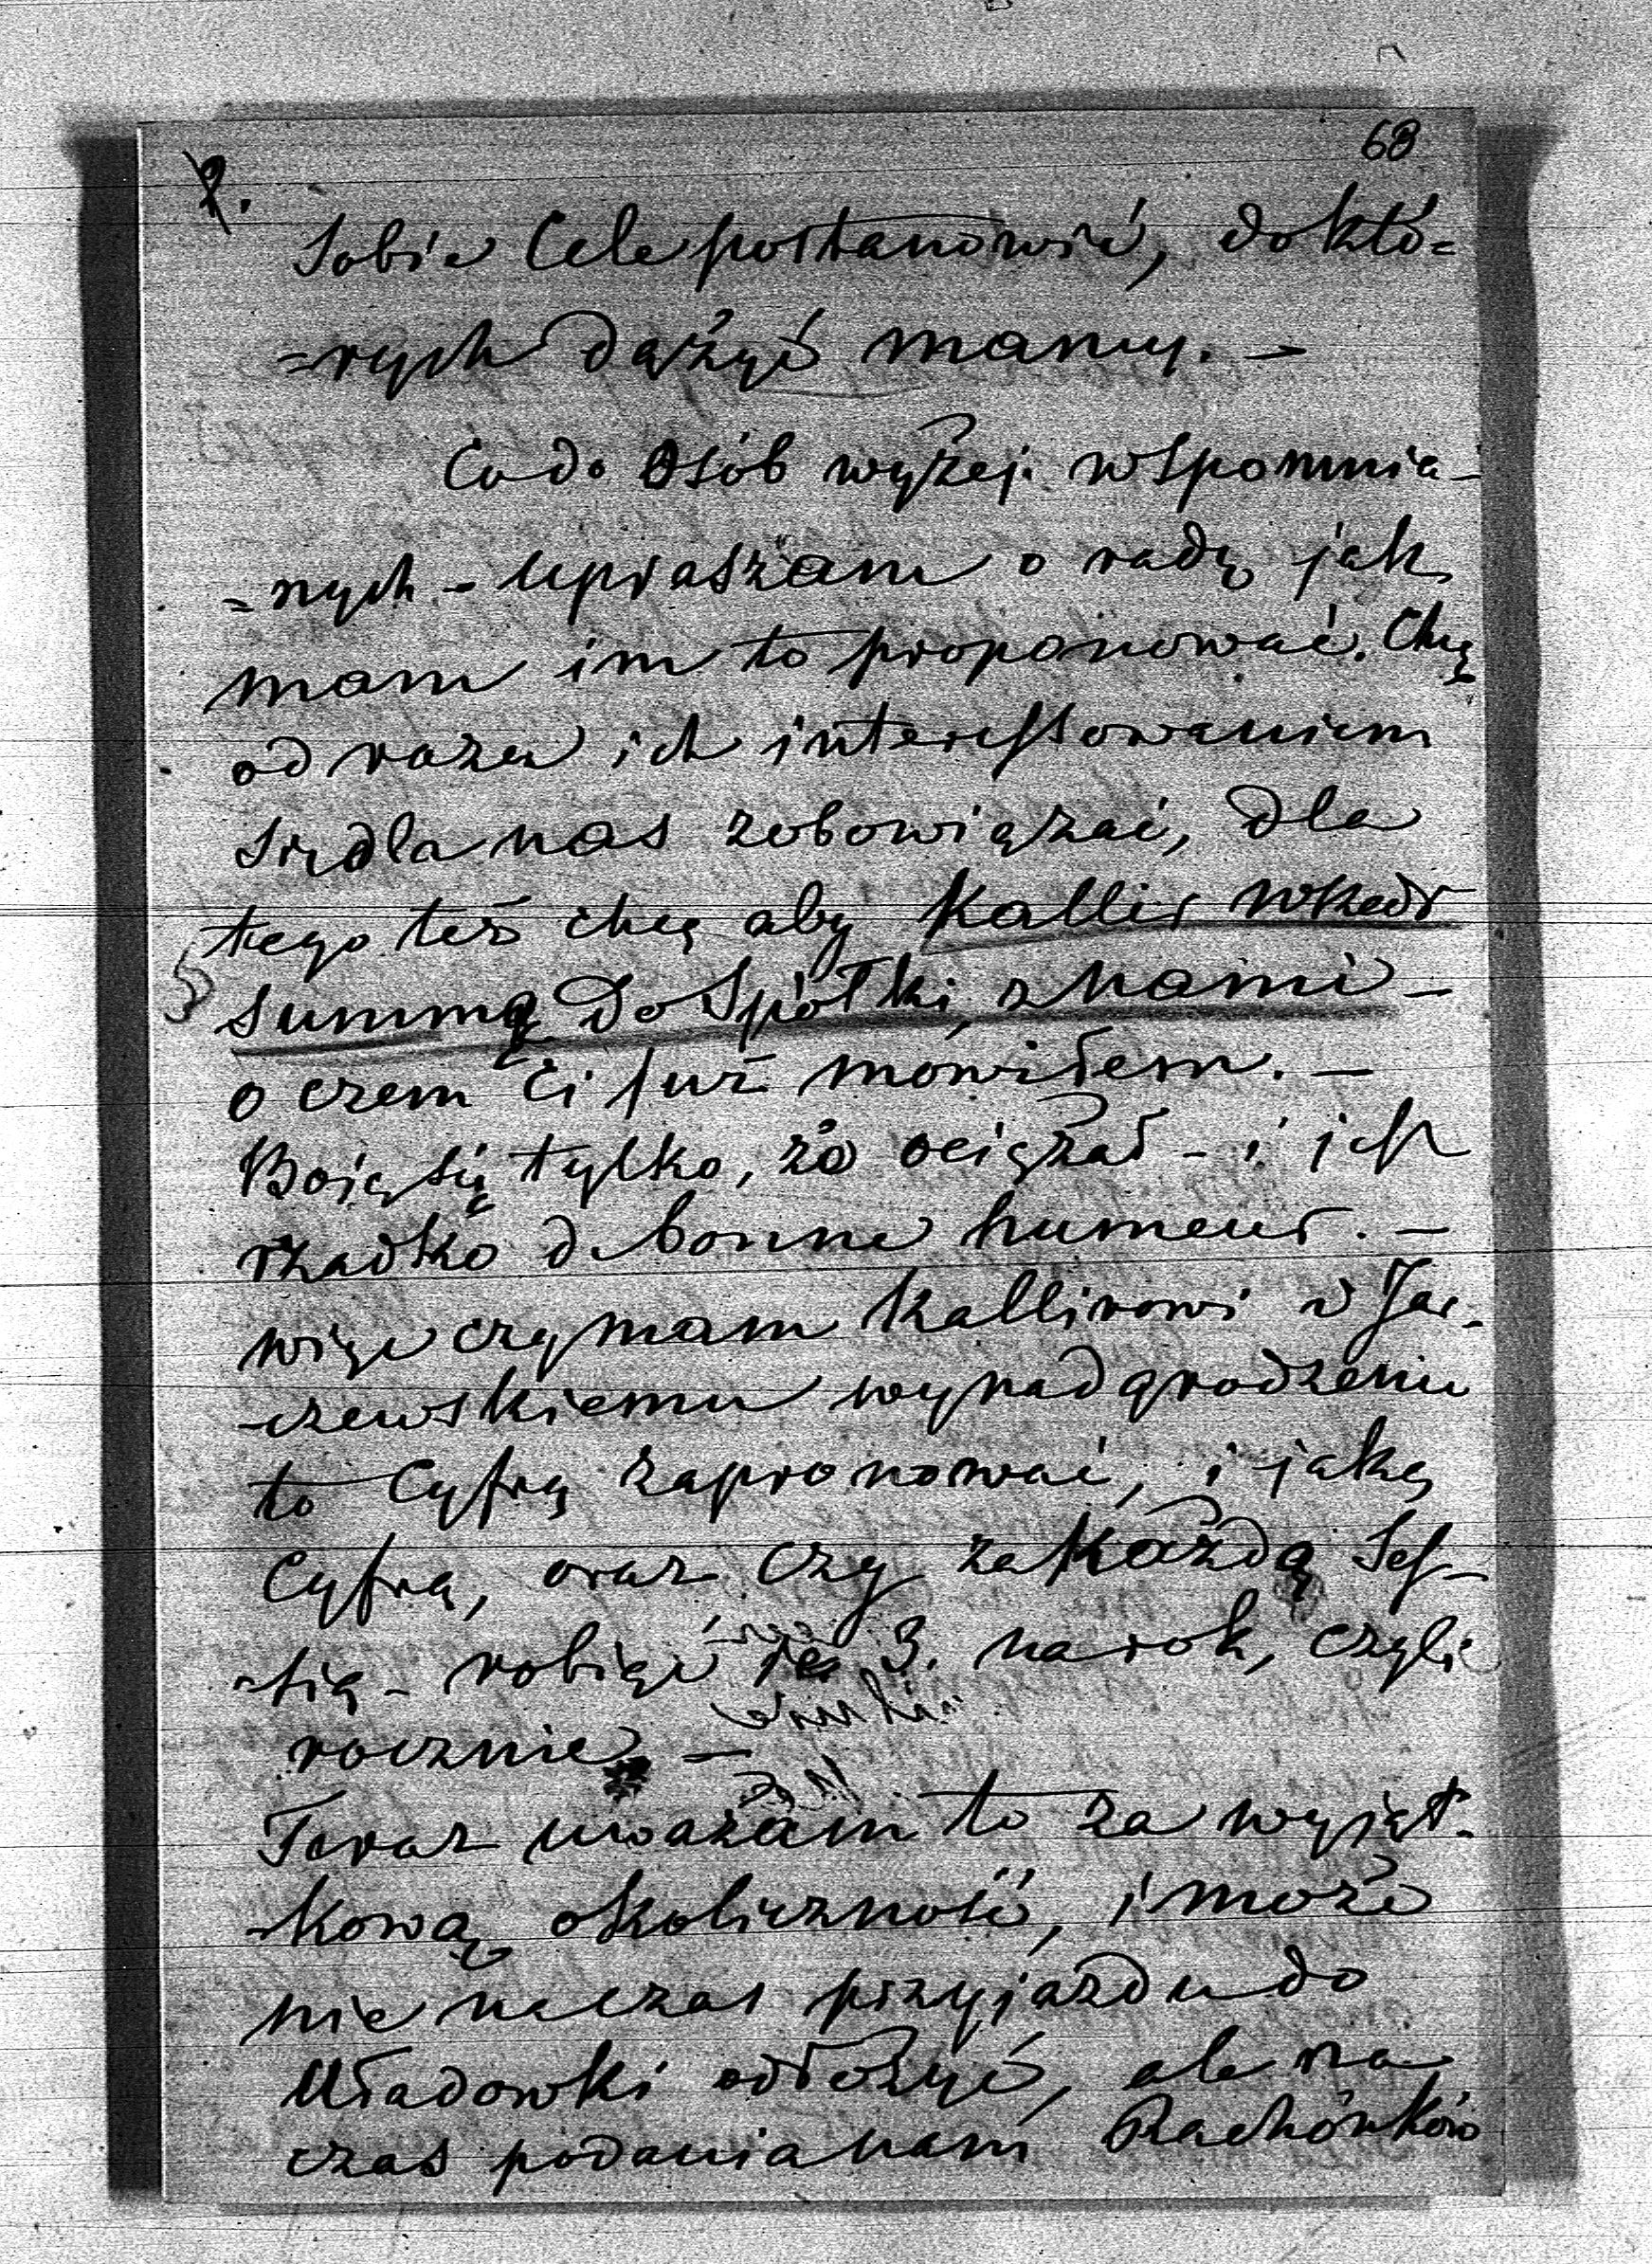 68
2.
Sobie Cele postanowić, do któ=
=rych dążyć mamy. —
Co do Osób wyżej wspomnia-
=nych - upraszam o radę jak
mam im to proponować. Chcę
od razu ich interessowaniem
się dla nas zobowiązać, dla
tego też chcę aby Kallir wszedł
summą do Spółki z nami —
o czem Ci już mówiłem. —
Boię się tylko, że ociężał - i jest
rzadko d. bonne humeur. —
więc czy mam Kallirowi i Jar-
-czewskiemu wynadgrodzeniu
to Cyfrą zapronować, i jaką
Cyfrą, oraz czy za każdą Ses-
-sią - robiąc 3. na rok, czyli
rocznie —
Teraz uważam to za wyjąt-
-kową okoliczność, i może
nie na czas przyjazdu do
Uładowki odłożyć, ale na
czas podania nam Rachónków